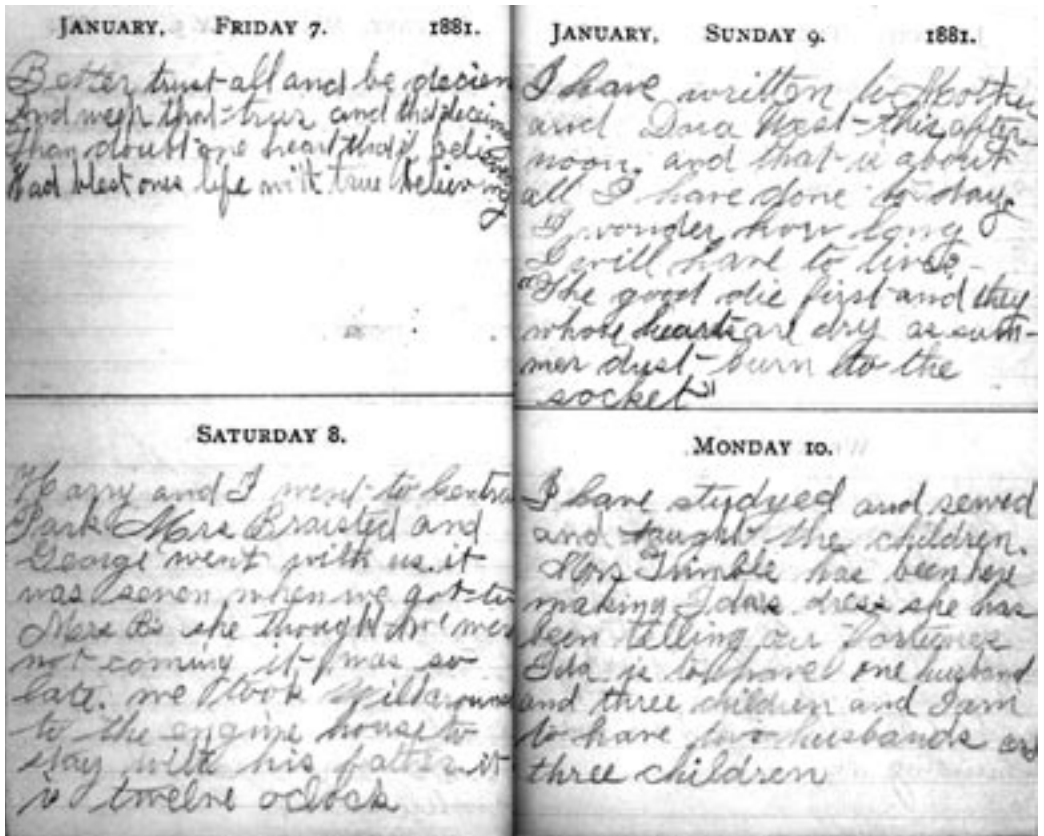 JANUARY, FRIDAY 7. 1881.
Better trust all and be deciev
And weep that trus and that decieving
Than doubt one heart that if believing
Had blest ones life with true believing
SATURDAY 8.
Harry and I went to Centra
Park Mrs Braisted and
George went with us. it
was seven when we got to
Mrs B's she thought we were
not coming it was so
late. we took Will around
to the engine house to
stay with his father. it
is twelve oclock
JANUARY, SUNDAY 9. 1881.
I have written to Mother
and Dora West this after
noon. and that is about
all I have done to day.
I wonder how long
I will have to live.
"The good die first and they
whose hearts are dry as sum-
mer dust burn to the
socket"
MONDAY 10.
I have studyed and sewed
and taught the children.
Mrs Trimble has been here
making Idas dress she has
been telling our fortunes
Ida is to have one husband
and three children and I am
to have two husbands and
three children